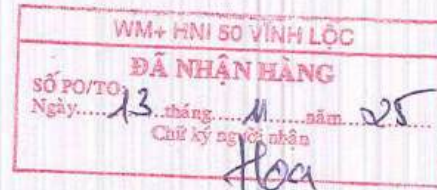 WM+ HNI 50 VĨNH LỘC
ĐÃ NHẬN HÀNG
SỐ PO/TO:
Ngày......13..tháng.....11......năm...25
Chữ ký người nhận
Hoa